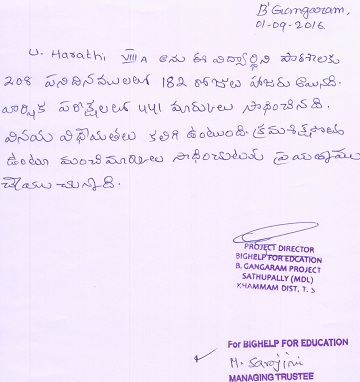 B' Gangaram,
01-09-2016
U. Harathi VIII A అను ఈ విద్యార్థిని పాఠశాలకు
208 పనిదినములలో 182 రోజులు హాజరు అయినది.
వార్షిక పరీక్షలలో 441 మార్కులు సాధించినది.
వినయ విధేయతలు కలిగి ఉంటుంది. క్రమశిక్షణతో
ఉంటూ మంచి మార్కులు సాధించుటకు ప్రయత్నము
చేయు చున్నది.
PROJECT DIRECTOR
BIGHELP FOR EDCATION
B. GANGARAM PROJECT
SATHUPALLY (MDL)
KHAMMAM DIST, T. S
For BIGHELP FOR EDUCATION
M. Sarojini
MANAGING TRUSTEE